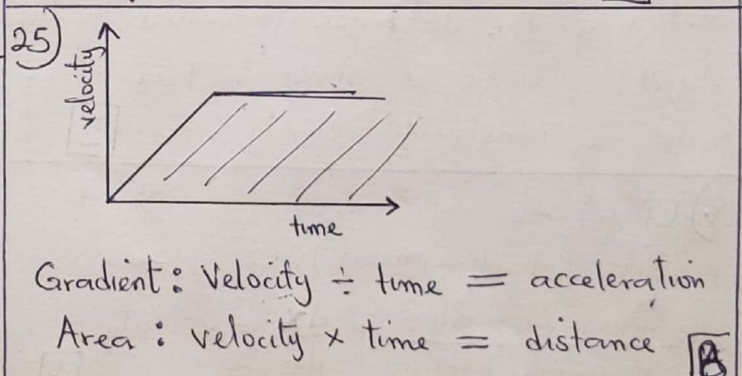 25)
velocity
time
Gradient: Velocity ÷ time = acceleration
Area: velocity × time = distance